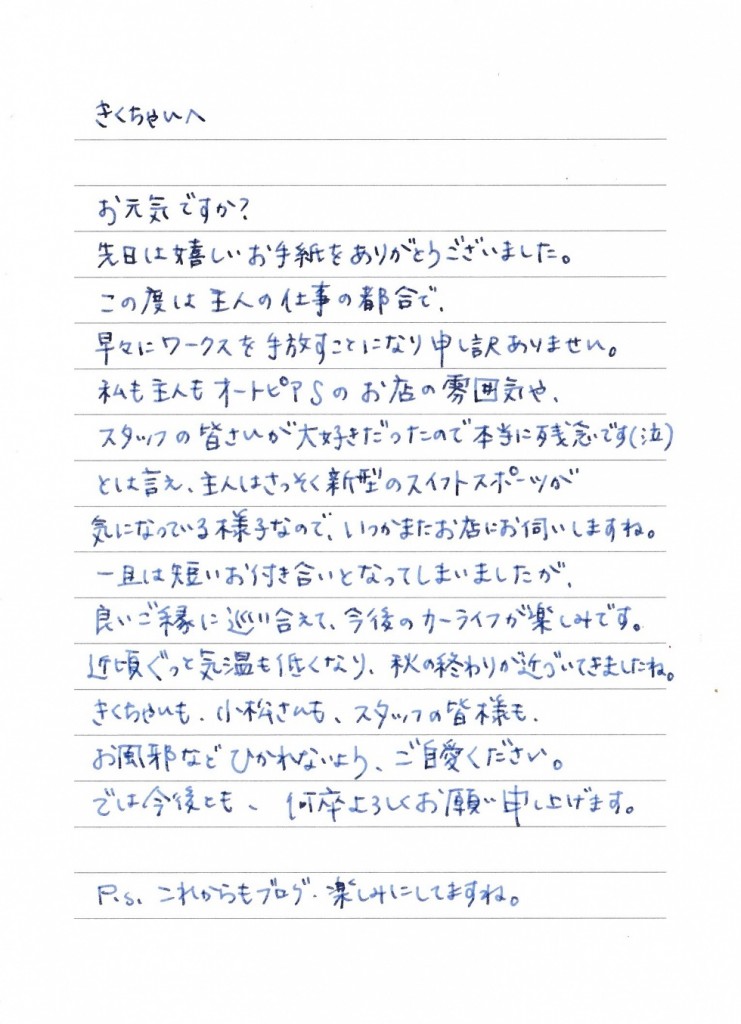 きくちゃんへ
お元気ですか?
先日は嬉しいお手紙をありがとうございました。
この度は主人の仕事の都合で、
早々にワークスを手放すことになり申し訳ありません。
私も主人もオートピアSのお店の雰囲気や、
スタッフの皆さんが大好きだったので本当に残念です(泣)
とは言え、主人はさっそく新型のスイフトスポーツが
気になっている様子なので、いつかまたお店にお伺いしますね。
一旦は短いお付き合いとなってしまいましたが、
良いご縁に巡り合えて、今後のカーライフが楽しみです。
近頃ぐっと気温も低くなり、秋の終わりが近づいてきましたね。
きくちゃんも、小松さんも、スタッフの皆様も、
お風邪などひかれないよう、ご自愛ください。
では今後とも、何卒よろしくお願い申し上げます。
P.s. これからもブログ、楽しみにしてますね。